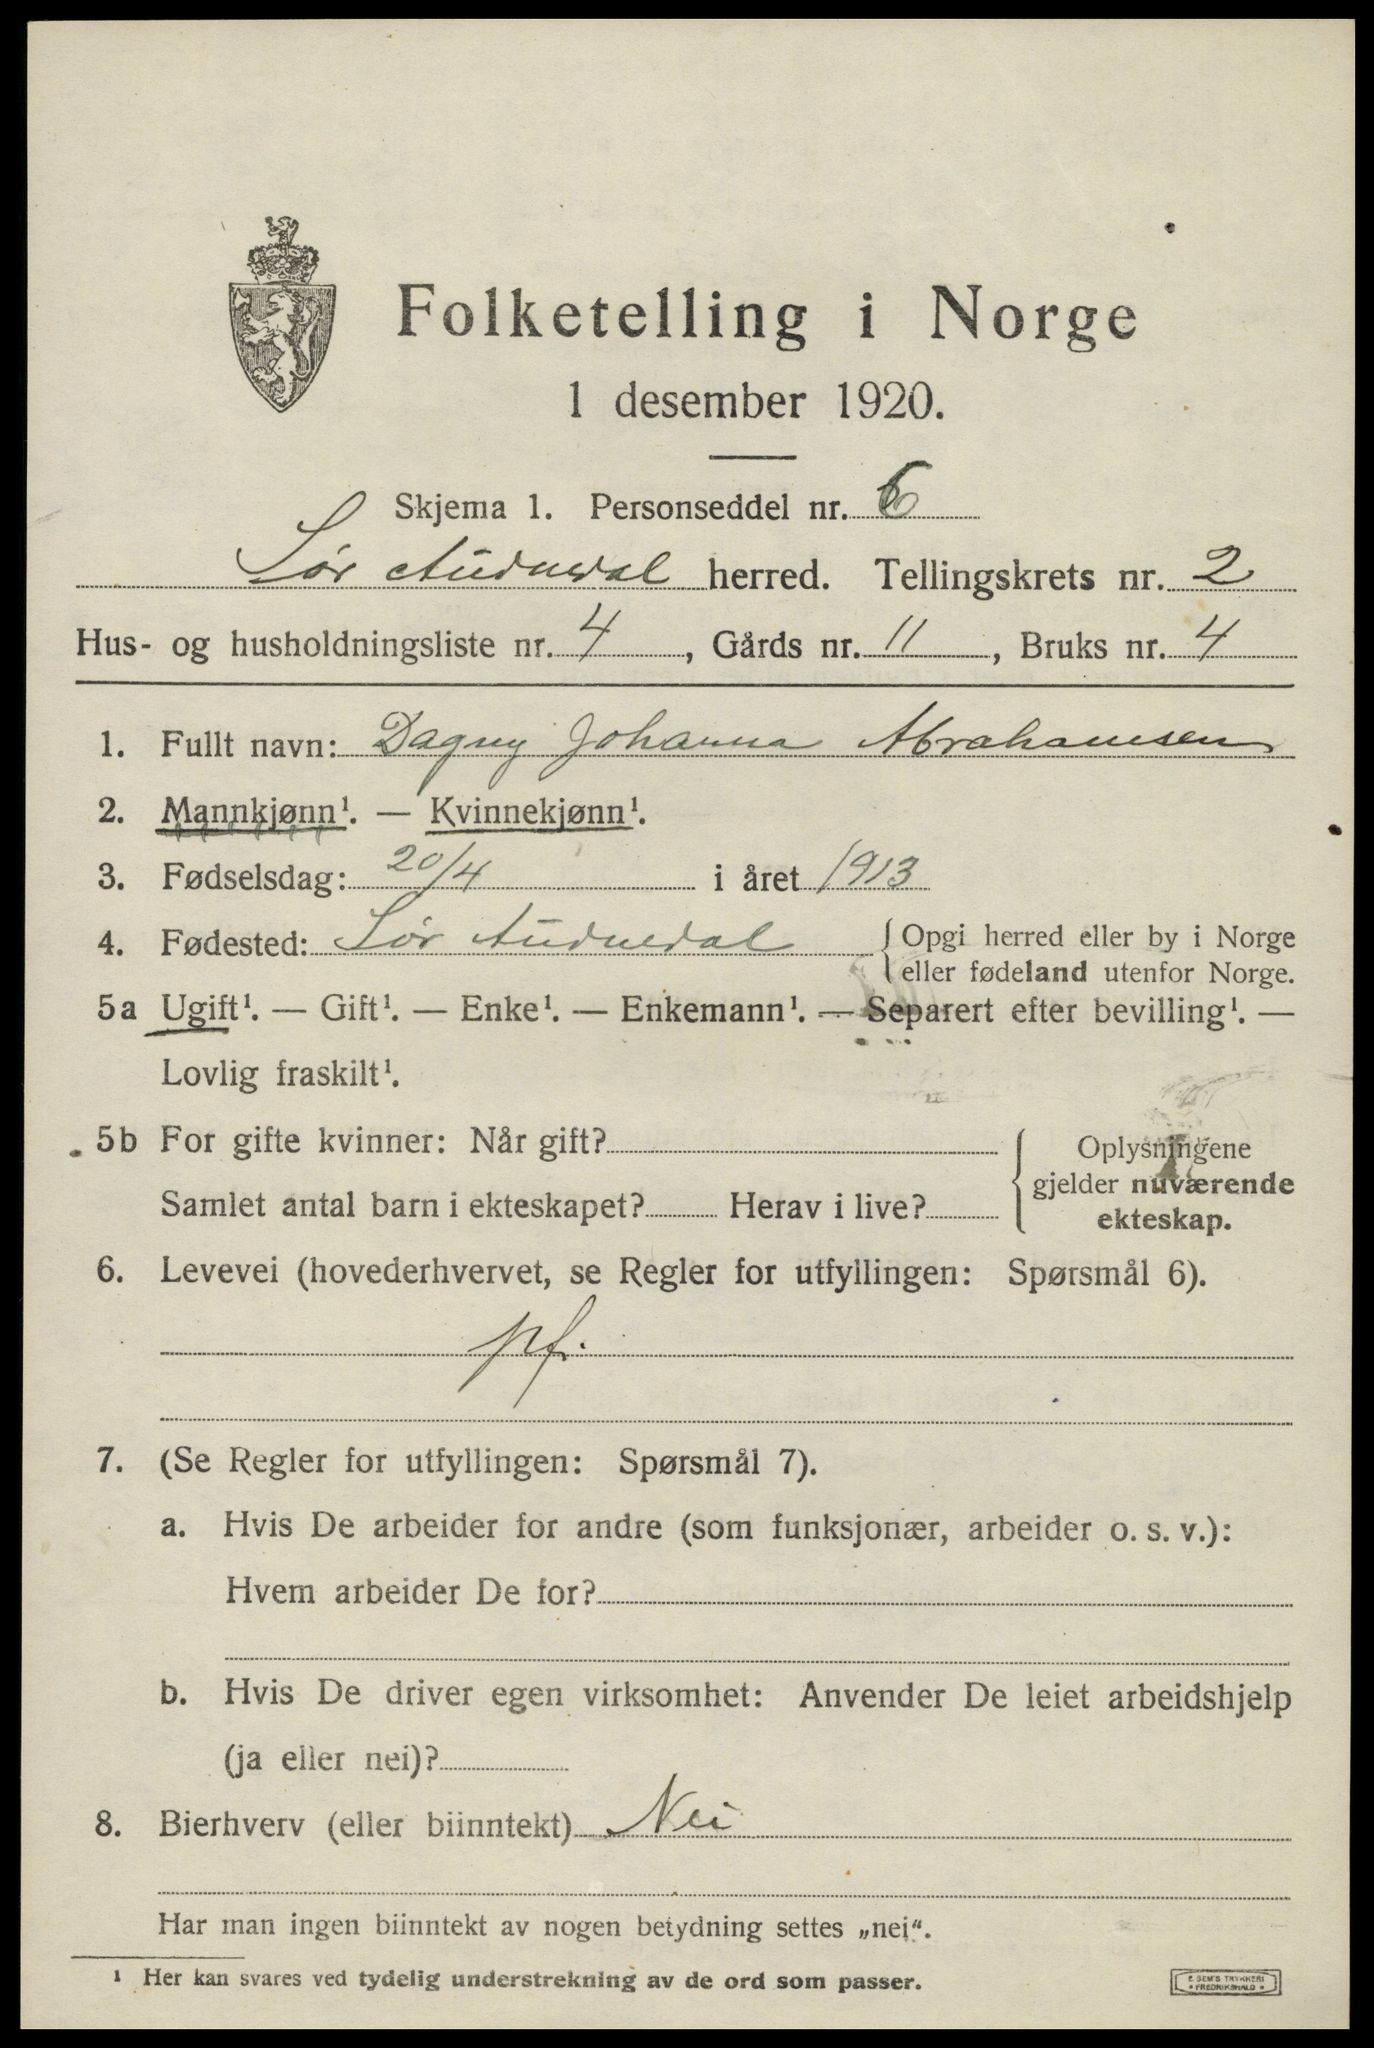 Folketelling i Norge
1 desember 1920.
Skjema 1. Personseddel nr. 6
Sør Audnedal herred. Tellingskrets nr. 2
Hus- og husholdningsliste nr. 4, Gårds nr. 11, Bruks nr. 4
1. Fullt navn: Dagny Johanna Abrahamsen
2. Mannkjønn¹. — Kvinnekjønn¹.
3. Fødselsdag: 20/4 i året 1913
4. Fødested: Sør Audnedal { Opgi herred eller by i Norge
eller fødeland utenfor Norge.
5a Ugift¹. — Gift¹. — Enke¹. — Enkemann¹. — Separert efter bevilling¹. —
Lovlig fraskilt¹.
5b For gifte kvinner: Når gift?
Samlet antal barn i ekteskapet? Herav i live?
{ Oplysningene
gjelder nuværende
ekteskap.
6. Levevei (hovederhvervet, se Regler for utfyllingen: Spørsmål 6).
pf.
7. (Se Regler for utfyllingen: Spørsmål 7).
a. Hvis De arbeider for andre (som funksjonær, arbeider o. s. v.):
Hvem arbeider De for?
b. Hvis De driver egen virksomhet: Anvender De leiet arbeidshjelp
(ja eller nei)?
8. Bierhverv (eller biinntekt) Nei
Har man ingen biinntekt av nogen betydning settes „nei“.
¹ Her kan svares ved tydelig understrekning av de ord som passer.
E SEM'S TRYKKERI
• FREDRIKSHALD •